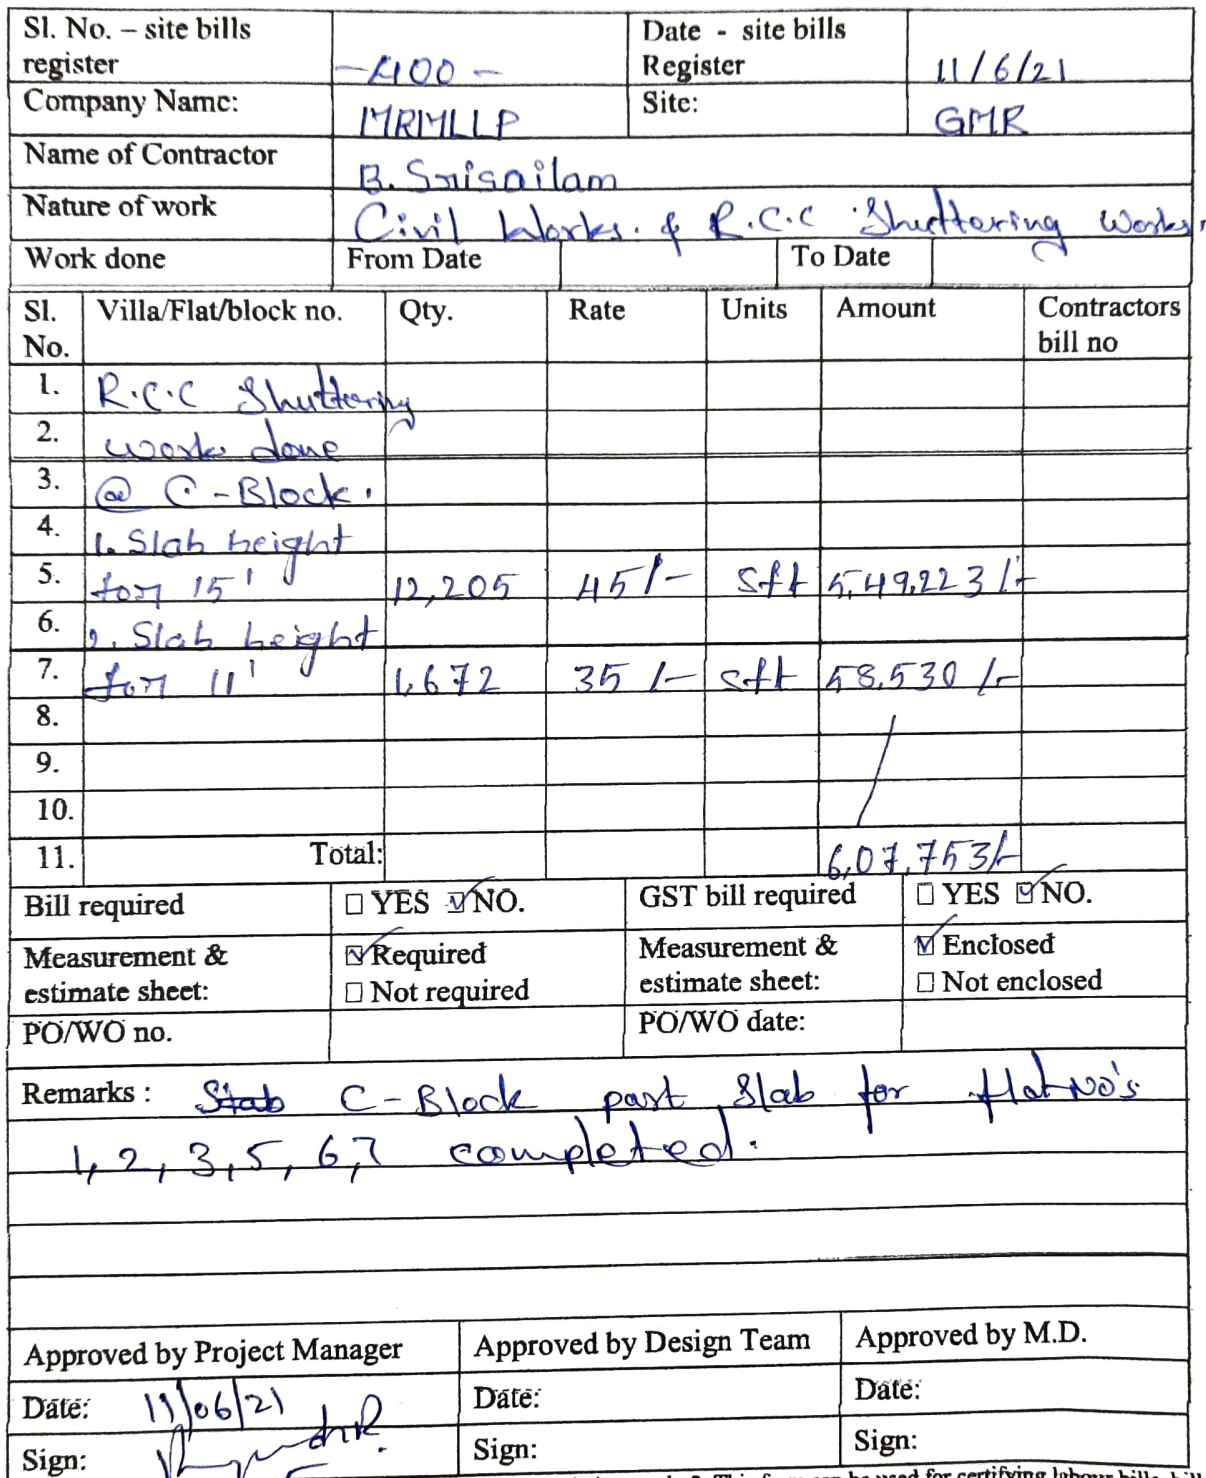 Sl. No. – site bills register -400- Date - site bills Register 11/6/21
Company Name: MRMLLP Site: GMR
Name of Contractor B. Srisailam
Nature of work Civil Works. & R.C.C Shuttering Works.
Work done From Date To Date
Sl. No. Villa/Flat/block no. Qty. Rate Units Amount Contractors bill no
1. R.C.C Shuttering
2. work done
3. @ C-Block.
4. 1. Slab height
5. for 15' 12,205 45/- sft 5,49,223/-
6. 2. Slab height
7. for 11' 1,672 35/- sft 58,530/-
8.
9.
10.
11. Total: 6,07,753/-
Bill required ☐ YES ☑ NO. GST bill required ☐ YES ☑ NO.
Measurement & estimate sheet: ☑ Required ☐ Not required Measurement & estimate sheet: ☑ Enclosed ☐ Not enclosed
PO/WO no. PO/WO date:
Remarks : Slab C-Block part slab for flat No's
1, 2, 3, 5, 6, 7 completed.
Approved by Project Manager Approved by Design Team Approved by M.D.
Date: 11/06/21 Date: Date:
Sign: Sign: Sign: